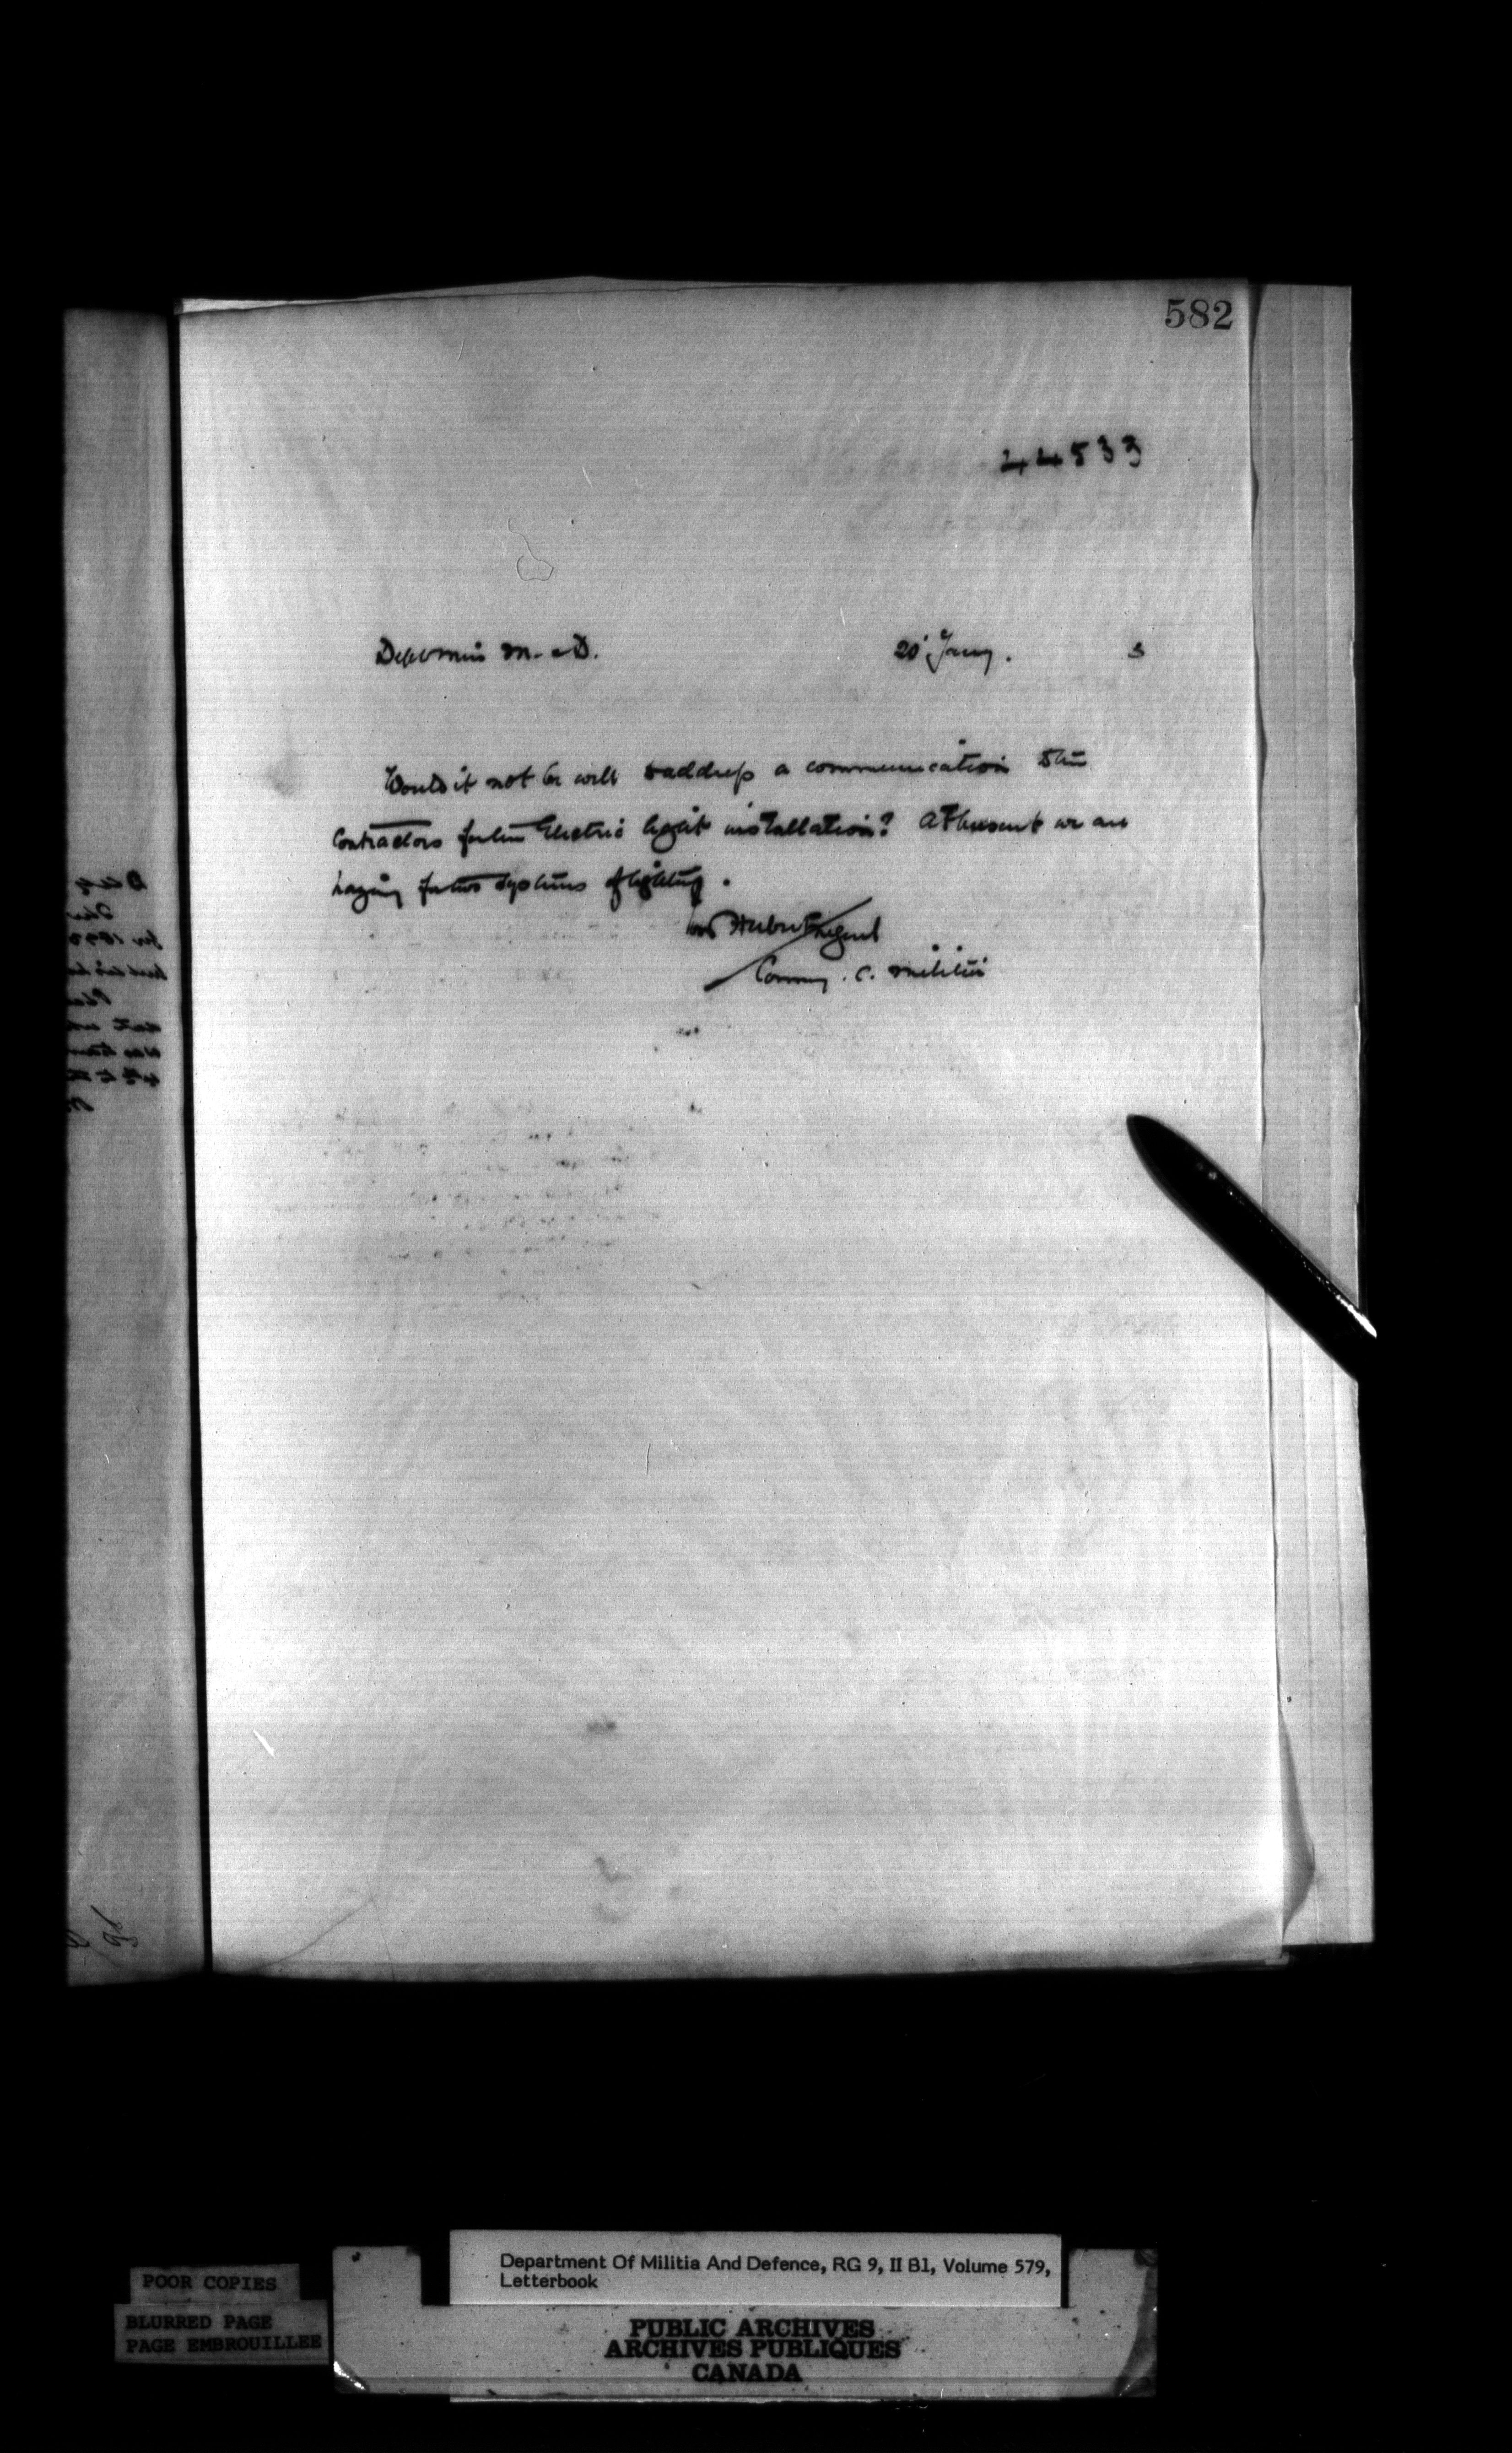 582
44533
Dep Min M. & D. 20 Jany. 3
Would it not be well to address a communication to the
Contractors for the Electric light installation? At present we are
paying for two systems of lighting.
Comg. C. Militia
Department Of Militia And Defence, RG 9, II B1, Volume 579,
Letterbook
POOR COPIES
BLURRED PAGE
PAGE EMBROUILLEE
PUBLIC ARCHIVES
ARCHIVES PUBLIQUES
CANADA